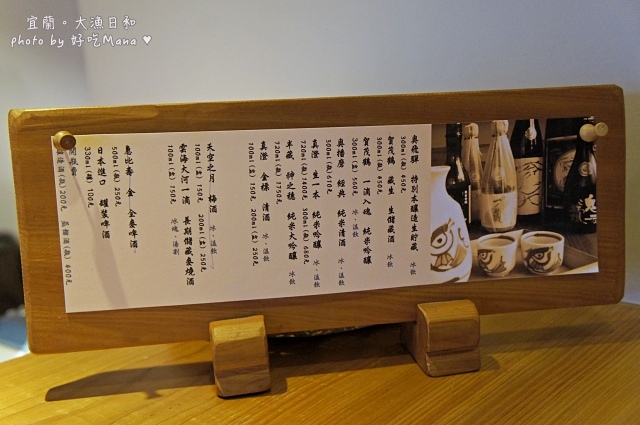 宜蘭。大漁日和
photo by 好吃Mana ♥
奧飛驒 特別本釀造生貯藏 冰飲
300ml(瓶)
賀茂鶴 蔵生 生儲藏酒 冰飲
300ml(瓶)
賀茂鶴 一滴入魂 純米吟釀
300ml(瓶) 560元
奧播磨 經典 純米清酒 冰、溫飲
500ml(瓶)
真澄 生一本 純米吟釀 冰、溫飲
720ml(瓶) 1600元 300ml(瓶) 680元
半藏 神之穗 純米大吟釀 冰飲
720ml(瓶) 1750元
真澄 金標 清酒 冰、溫飲
100ml(壺) 150元 200ml(壺) 250元
天空之月 梅酒 冰、溫飲
100ml(壺) 150元 200ml(壺) 250元
雲海大河一滴 長期儲藏麥燒酒
100ml(壺) 150元 冰塊、湯割
惠比壽 金 全麥啤酒
500ml(瓶) 250元
日本進口 罐裝啤酒
330ml(罐) 100元
開瓶費
清酒(瓶)200元 烈酒(瓶)400元